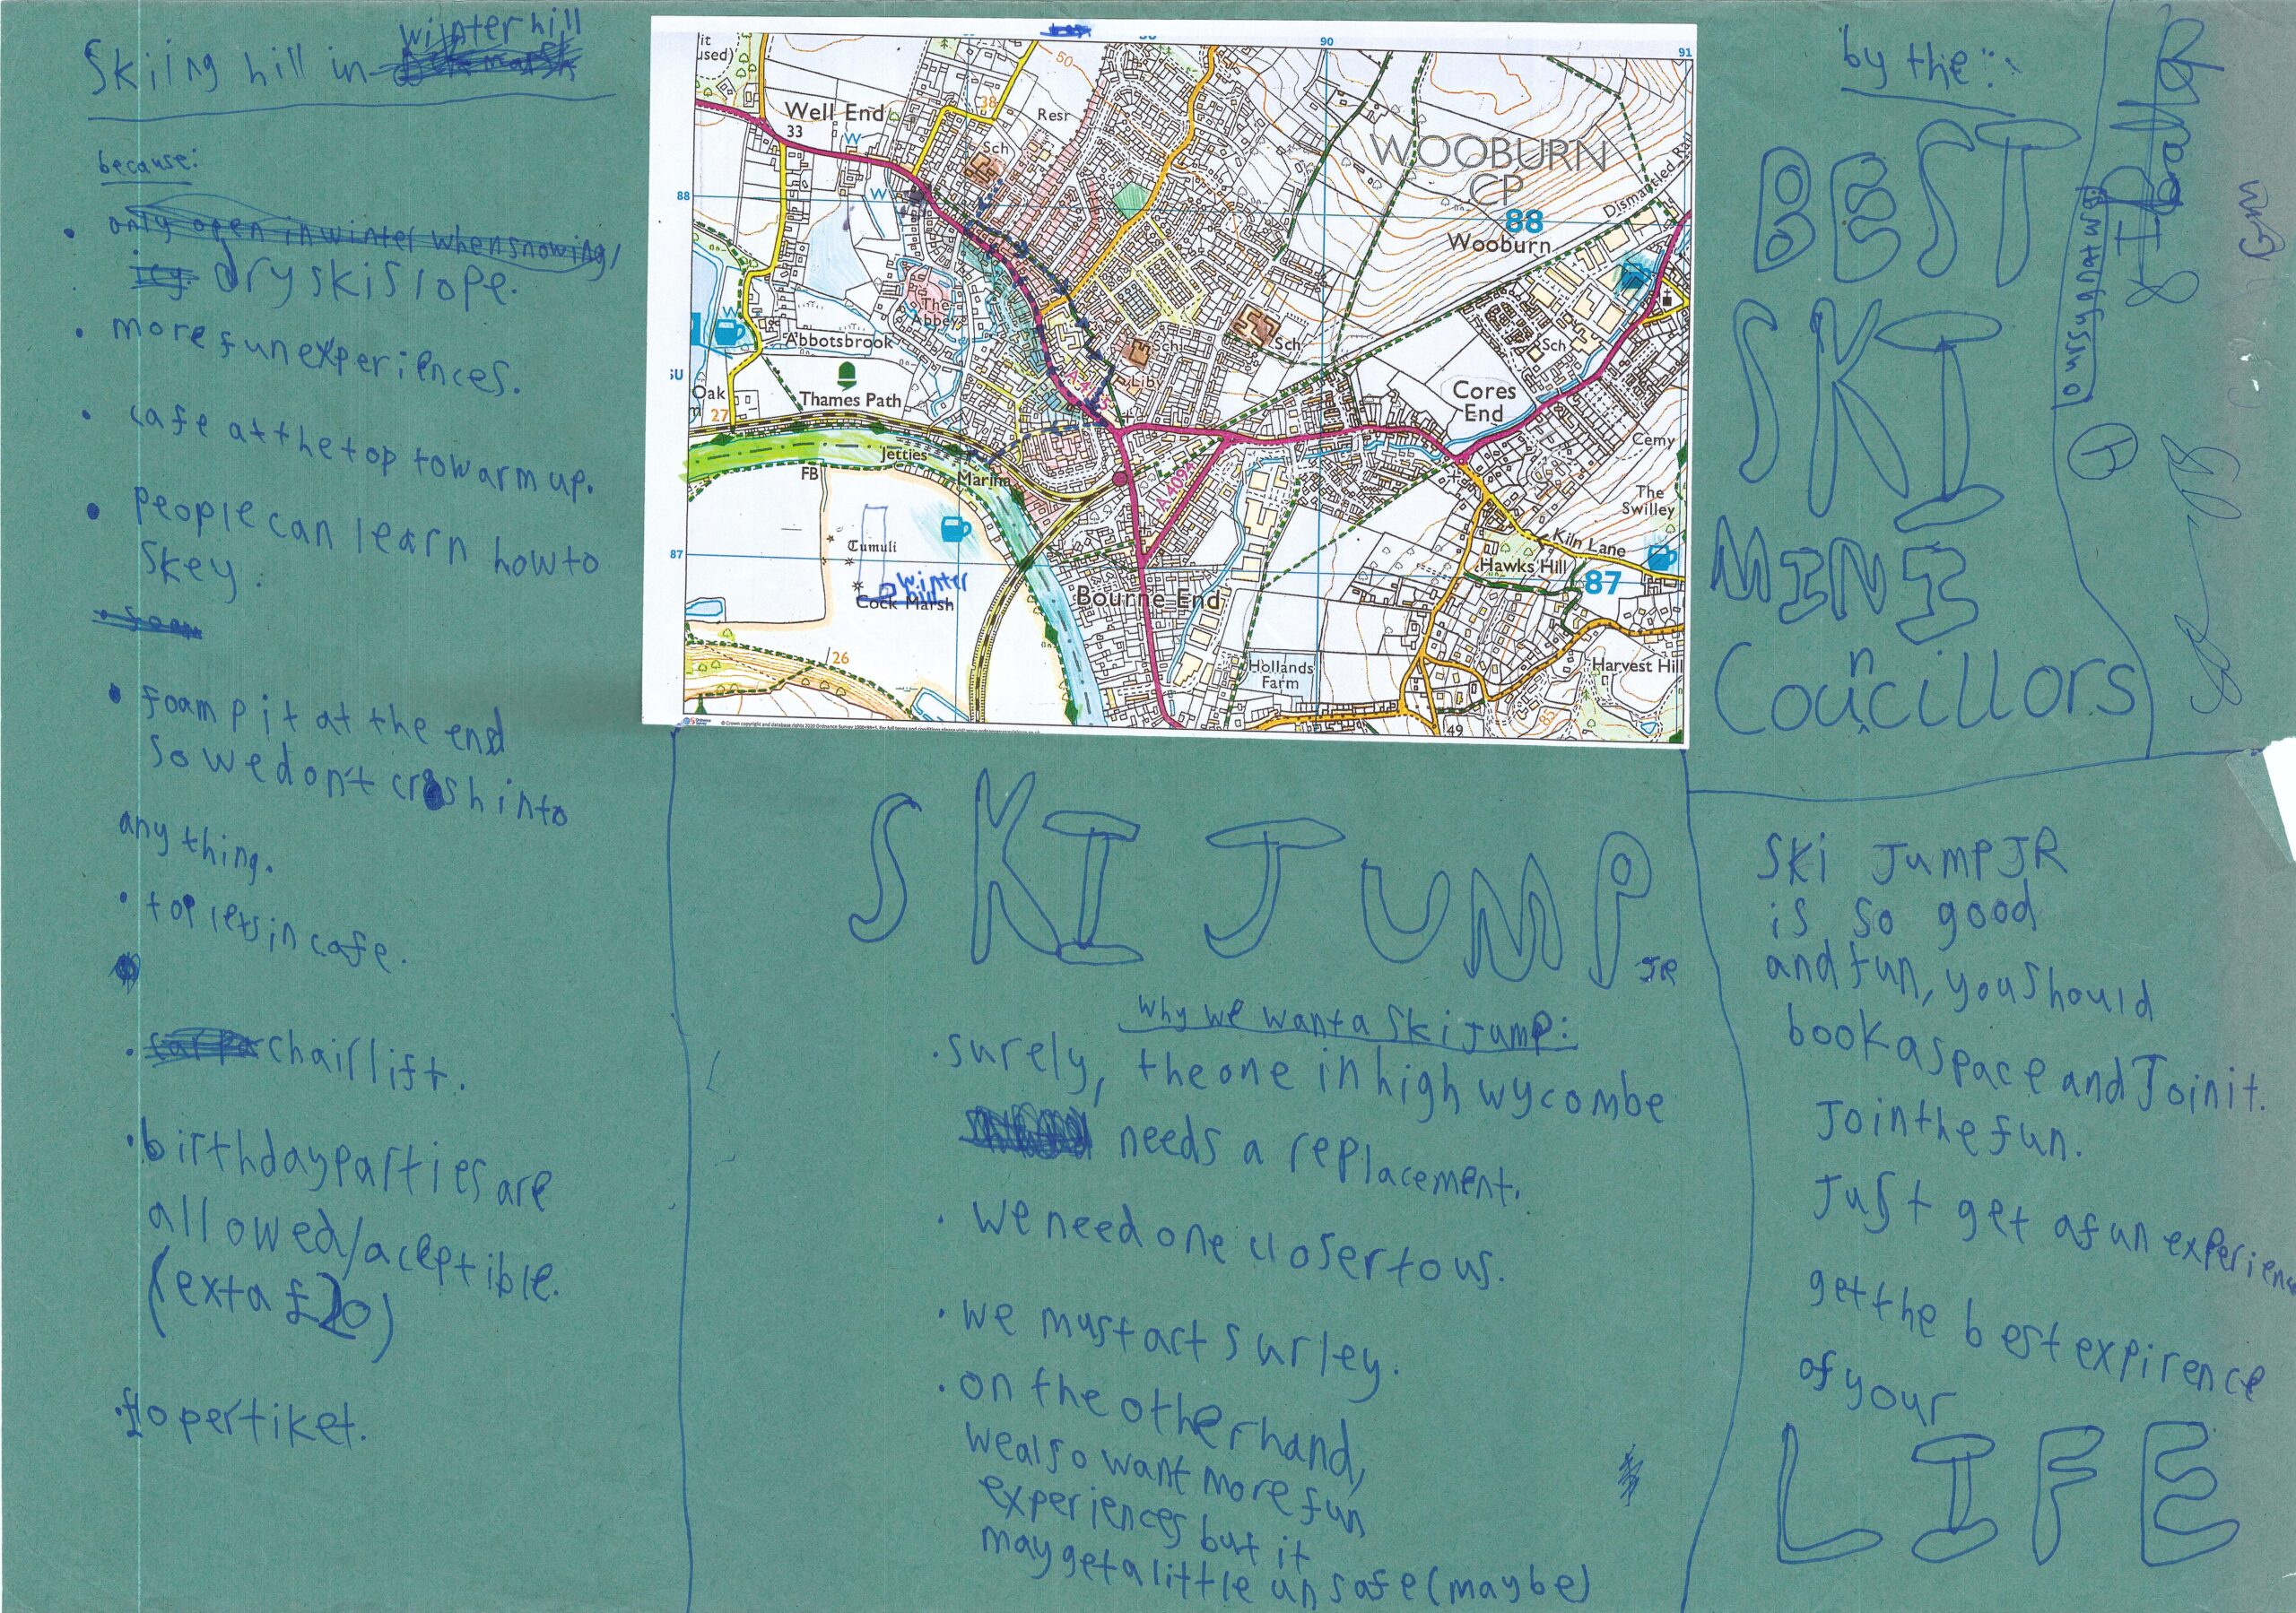 Skiing hill in winter hill
because:
• only open in winter when snowing/
icy dry ski slope.
• more fun experiences.
• cafe at the top to warm up.
• People can learn how to
skey.
• foam
• foam pit at the end
so we don't crash into
any thing.
• toilets in cafe.
• chair lift.
• birthday parties are
allowed/aceptible.
(exta £20)
• £10 per tiket.
it
used)
Well End
33
W
38
50
Resr
Sch
90
91
WOOBURN
CP
88
88
Wooburn
Dismantled Rail
W
The
Abbey
Abbotsbrook
W
SU
Oak
27
Thames Path
Sch
Lib
Sch
Sch
Cores
End
Cemy
Jetties
FB
Marina
A 4094
The
Swilley
Kiln Lane
Hawks Hill
87
87
Tumuli
winter
hill
Cock Marsh
Bourne End
26
Hollands
Farm
Harvest Hill
49
© Crown copyright and database rights 2020 Ordnance Survey
by the:
BEST
SKI
MINI
Councillors
SKI JUMP JR
Why we want a ski jump:
• surely, the one in high wycombe
needs a replacement.
• we need one closer to us.
• we must act surley.
• on the other hand,
we also want more fun
experiences but it
may get a little unsafe (maybe)
Ski Jump JR
is so good
and fun, you should
book a space and Join it.
Join the fun.
Just get a fun experienc
get the best expirence
of your
LIFE